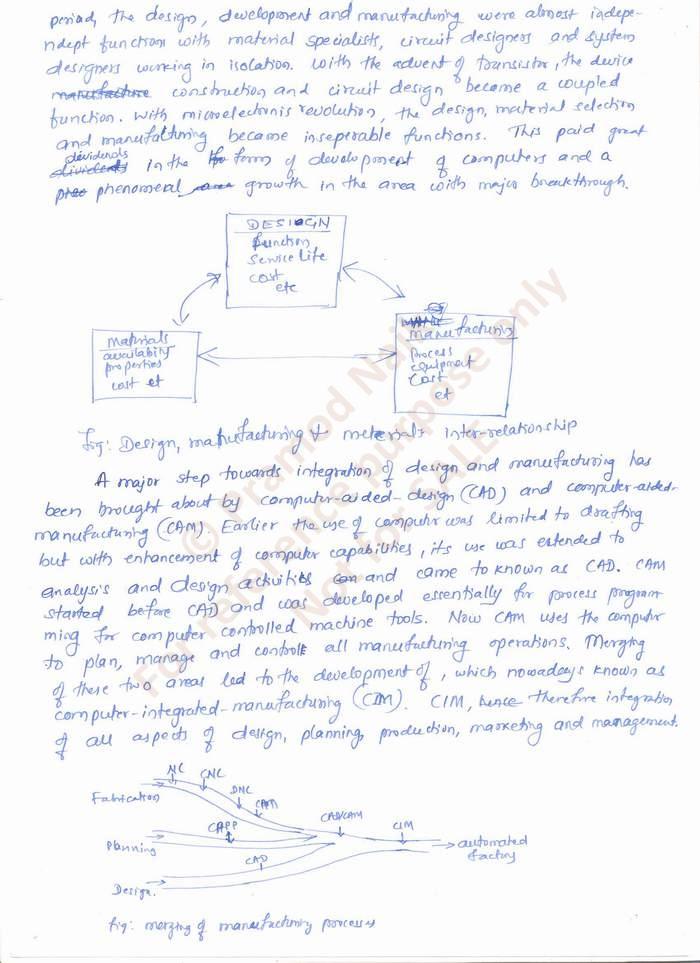 period, the design, development and manufacturing were almost indepe-
ndept function with material specialists, circuit designers and system
designers working in isolation. With the advent of transistor, the device
manufacture construction and circuit design became a coupled
function. With microelectronis revolution, the design, material selection
and manufacturing became inseperable functions. This paid great
dividends
in the form of development of computers and a
phenomenal growth in the area with major breakthrough.
DESIGN
function
Service life
cost
etc
Materials
availability
properties
cost et
manufacturing
process
equipment
Cost
et
fig: Design, manufacturing & materials inter-relationship
A major step towards integration of design and manufacturing has
been brought about by computer-aided-design (CAD) and computer-aided-
manufacturing (CAM). Earlier the use of computer was limited to drafting
but with enhancement of computer capabilities, its use was extended to
analysis and design activities and came to known as CAD. CAM
started before CAD and was developed essentially for process program
ming for computer controlled machine tools. Now CAM uses the computer
to plan, manage and controls all manufacturing operations. Merging
of these two areas led to the development of, which nowadays known as
computer-integrated-manufacturing (CIM). CIM, hence therefore integration
of all aspects of design, planning, production, marketing and management.
NC
CNC
DNC
CAM
Fabrication
CAPP
CAD/CAM
CIM
Planning
automated
factory
CAD
Design.
fig: merging of manufacturing processes
© Pramod Naik
For reference purpose only
Not for SALE